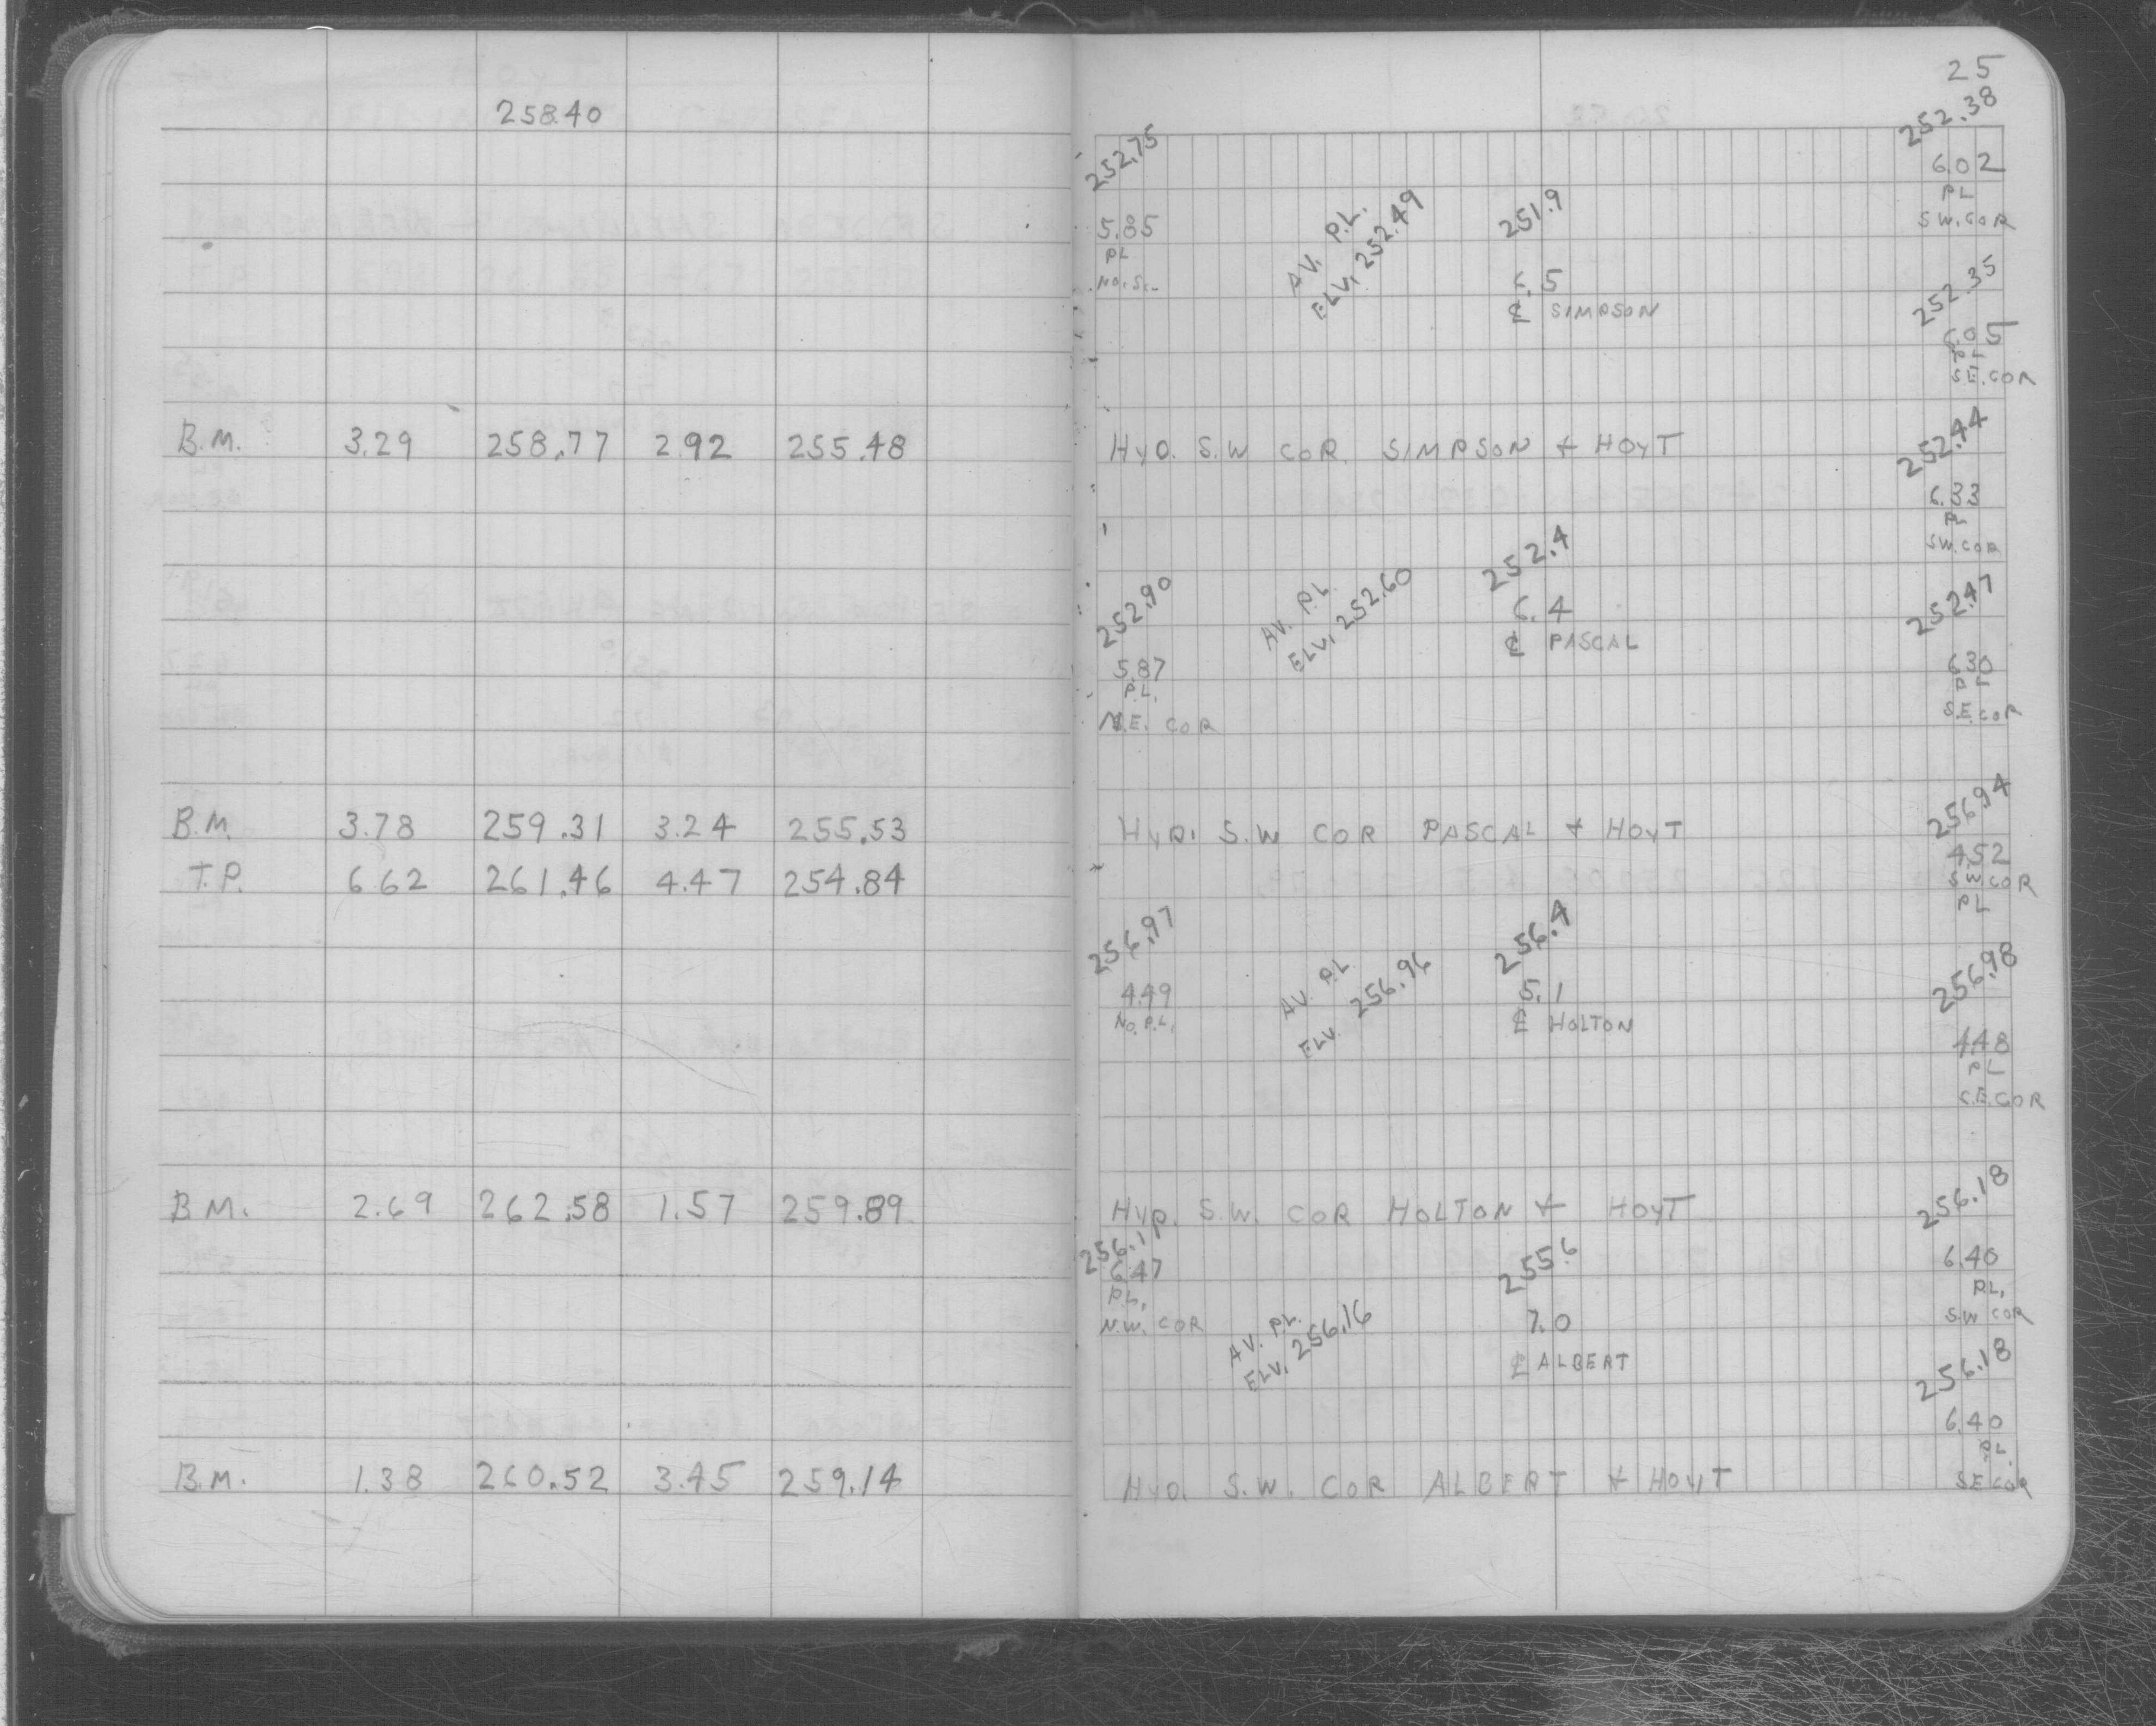 258.40
B.M. 3.29 258.77 2.92 255.48
B.M. 3.78 259.31 3.24 255.53
T.P. 6.62 261.46 4.47 254.84
B.M. 2.69 262.58 1.57 259.89
B.M. 1.38 260.52 3.45 259.14
25
252.75
5.85
PL
AV. P.L.
ELV. 252.49
251.9
6.5
℄ SIMPSON
252.38
6.02
PL
S.W. COR
252.35
6.05
PL
S.E. COR
HYD. S.W COR. SIMPSON & HOYT
252.44
6.33
PL
S.W. COR
252.90
5.87
P.L.
N.E. COR
AV. P.L.
ELV. 252.60
252.4
6.4
℄ PASCAL
252.47
6.30
PL
S.E. COR
HYD. S.W COR PASCAL & HOYT
256.94
4.52
S.W. COR
PL
256.97
4.49
No. P.L.
AV. P.L
ELV. 256.96
256.4
5.1
℄ HOLTON
256.98
4.48
PL
S.E. COR
HYD. S.W. COR HOLTON & HOYT
256.11
6.47
P.L.
N.W. COR
AV. P.L.
ELV. 256.16
255.6
7.0
℄ ALBERT
256.18
6.40
P.L.
S.W COR
256.18
6.40
P.L.
S.E COR
HYD. S.W. COR ALBERT & HOYT